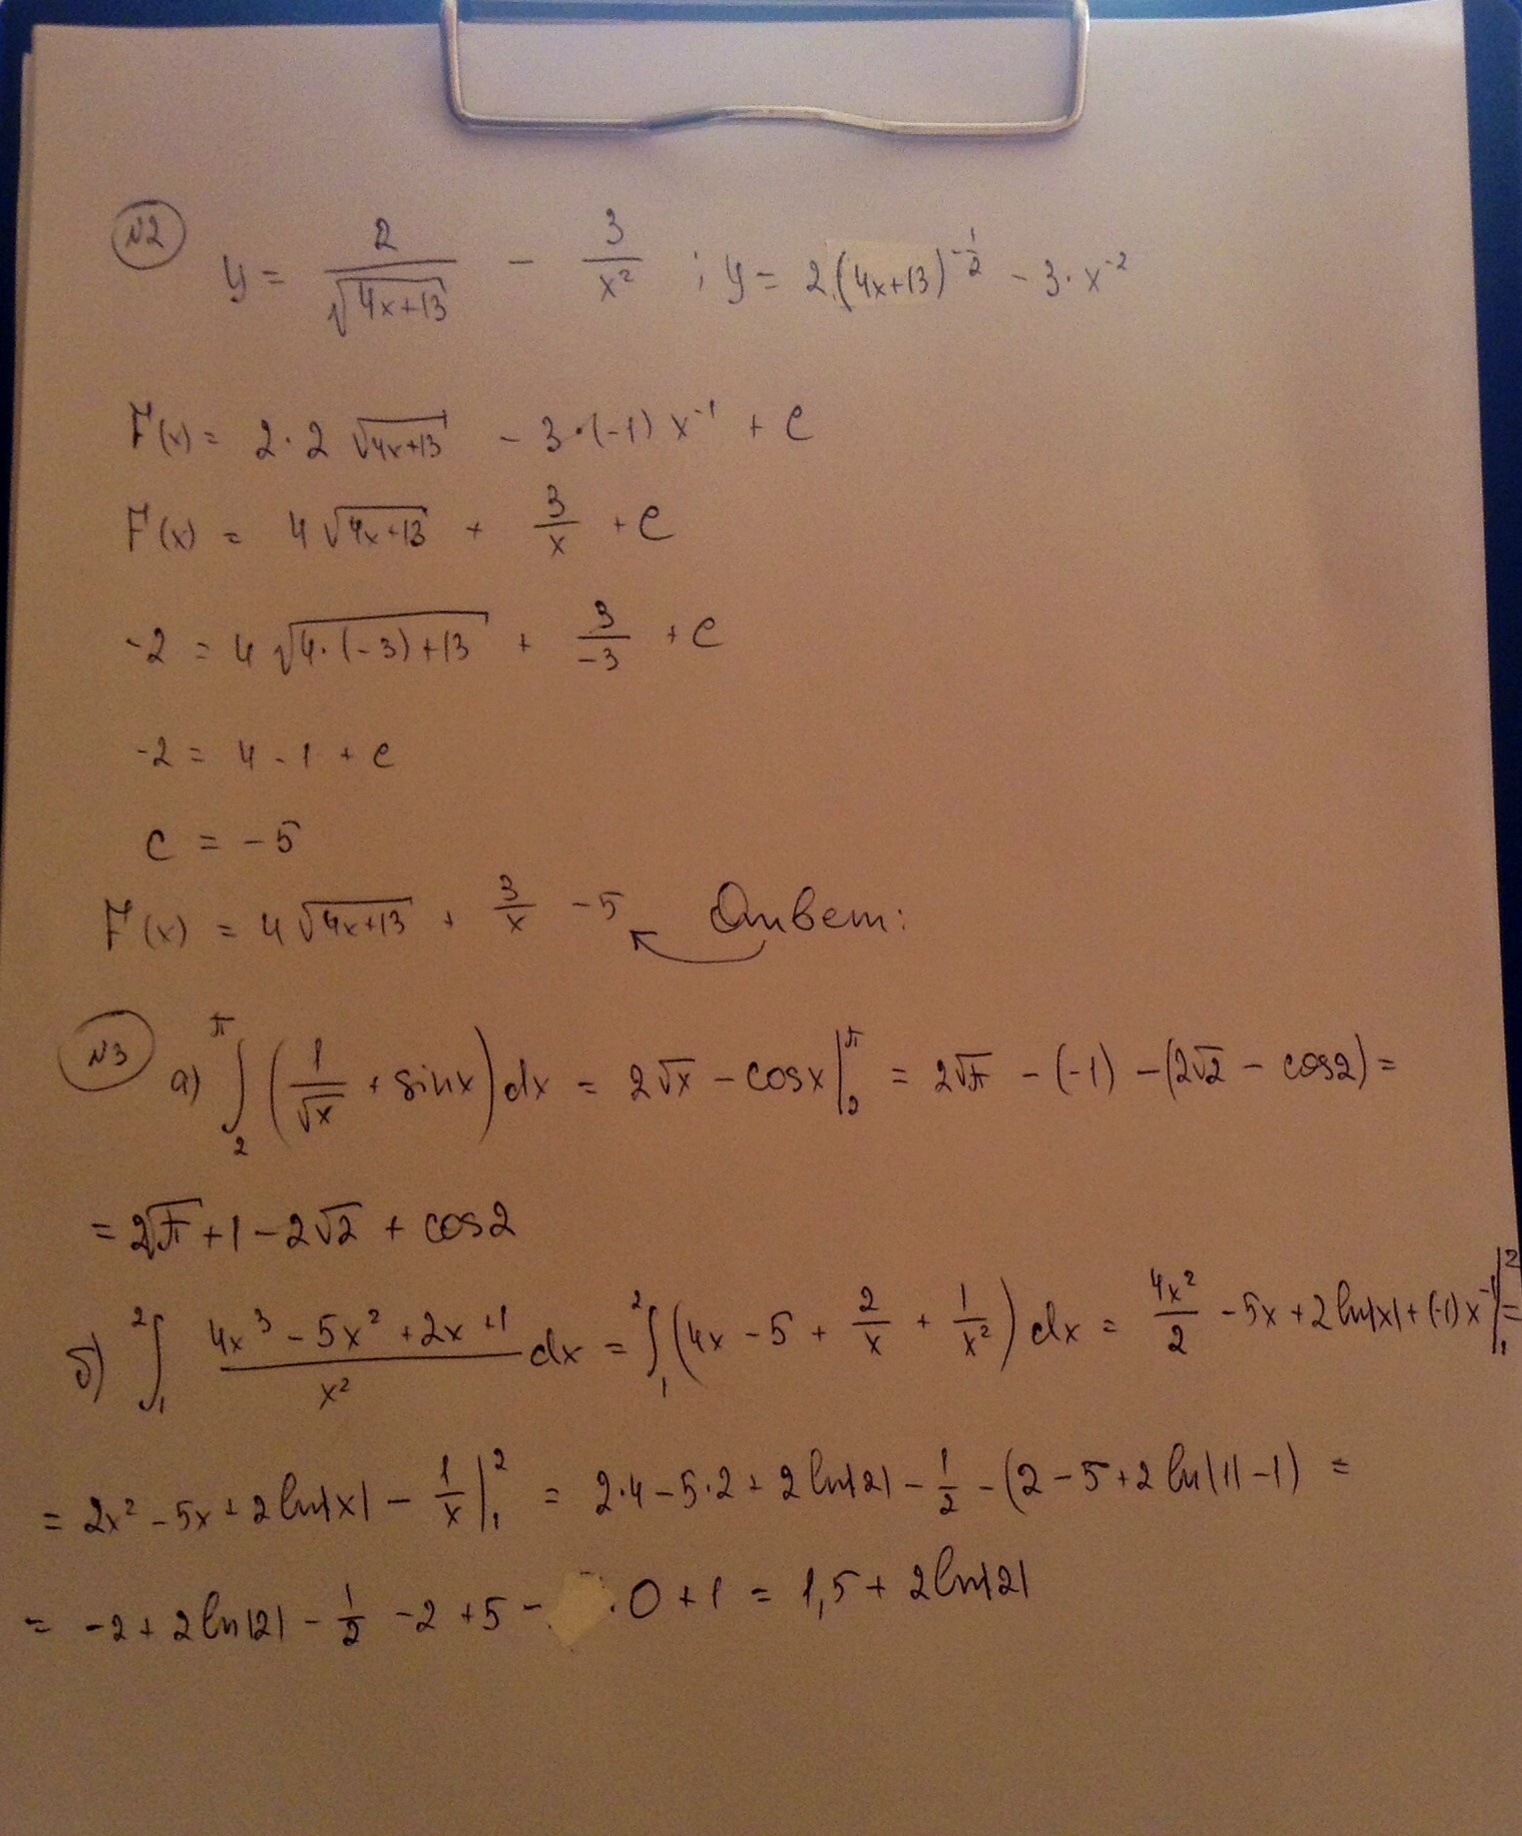 №2 y = 2/√(4x+13) - 3/x² ; y = 2·(4x+13)^(-1/2) - 3·x⁻²
F(x) = 2·2 √(4x+13) - 3·(-1) x⁻¹ + C
F(x) = 4√(4x+13) + 3/x + C
-2 = 4 √(4·(-3)+13) + 3/-3 + C
-2 = 4 - 1 + C
C = -5
F(x) = 4√(4x+13) + 3/x - 5 Ответ:
№3 а) ∫₂^π (1/√x + sinx) dx = 2√x - cosx |₂^π = 2√π - (-1) - (2√2 - cos2) =
= 2√π + 1 - 2√2 + cos2
б) ∫₁² (4x³ - 5x² + 2x + 1)/x² dx = ∫₁² (4x - 5 + 2/x + 1/x²) dx = 4x²/2 - 5x + 2ln|x| + (-1)x⁻¹ |₁² =
= 2x² - 5x + 2ln|x| - 1/x |₁² = 2·4 - 5·2 + 2ln|2| - 1/2 - (2 - 5 + 2ln|1| - 1) =
= -2 + 2ln|2| - 1/2 - 2 + 5 - ·0 + 1 = 1,5 + 2ln|2|